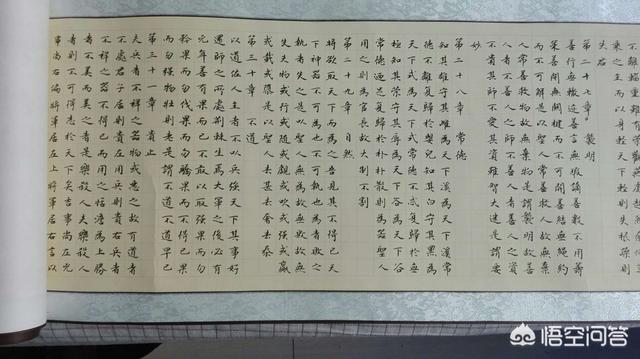 不離輜重雖
乘之主而以身輕天下輕則失根躁則
失右
第二十七章 襲明
善行無轍迹善言無瑕謫善數不用籌
策善閉無關楗而不可開善結無繩約
而不可解是以聖人常善救人故無棄
人常善救物故無棄物是謂襲明故善
人者不善人之師不善人者善人之資
不貴其師不愛其資雖智大迷是謂要
妙
第二十八章 常德
知其雄守其雌為天下溪為天下溪常
德不離復歸於嬰兒知其白守其黑為
天下式為天下式常德不忒復歸於無
極知其榮守其辱為天下谷為天下谷
常德乃足復歸於朴朴散則為器聖人
用之則為官長故大制不割
第二十九章 自然
將欲取天下而為之吾見其不得已天
下神器不可為也不可執也為者敗之
執者失之是以聖人無為故無敗無執故無
失夫物或行或隨或噓或吹或強或羸
或載或隳是以聖人去甚去奢去泰
第三十章 不道
以道佐人主者不以兵強天下其事好
還師之所處荊棘生焉大軍之後必有
凶年善有果而已不敢以取強果而勿
矜果而勿伐果而勿驕果而不得已果
而勿強物壯則老是謂不道不道早已
第三十一章 貴止
夫兵者不祥之器物或惡之故有道者
不處君子居則貴左用兵則貴右兵者
不祥之器不得已而用之恬澹為上勝
者不美而美之者是樂殺人夫樂殺人
者則不可得志於天下矣吉事尚左凶
事尚右偏將軍居左上將軍居右言以
悟空问答